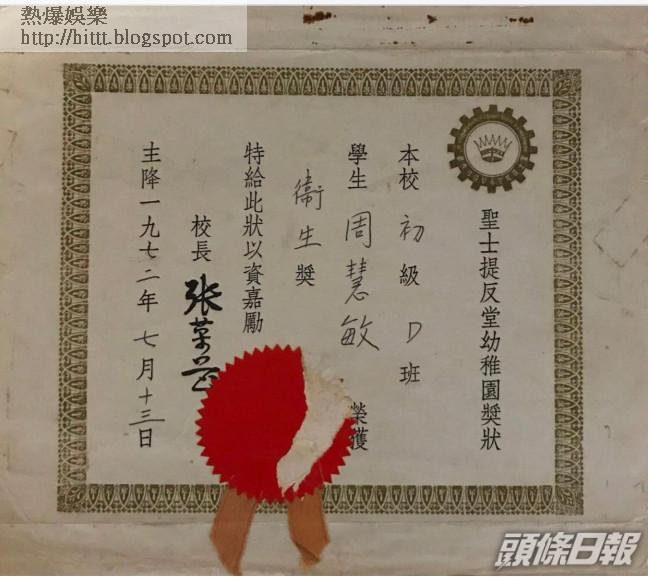 熱爆娛樂
http://hittt.blogspot.com
聖士提反堂幼稚園獎狀
本校初級D班
學生周慧敏榮獲
衞生獎
特給此狀以資嘉勵
校長
主降一九七二年七月十三日
頭條日報